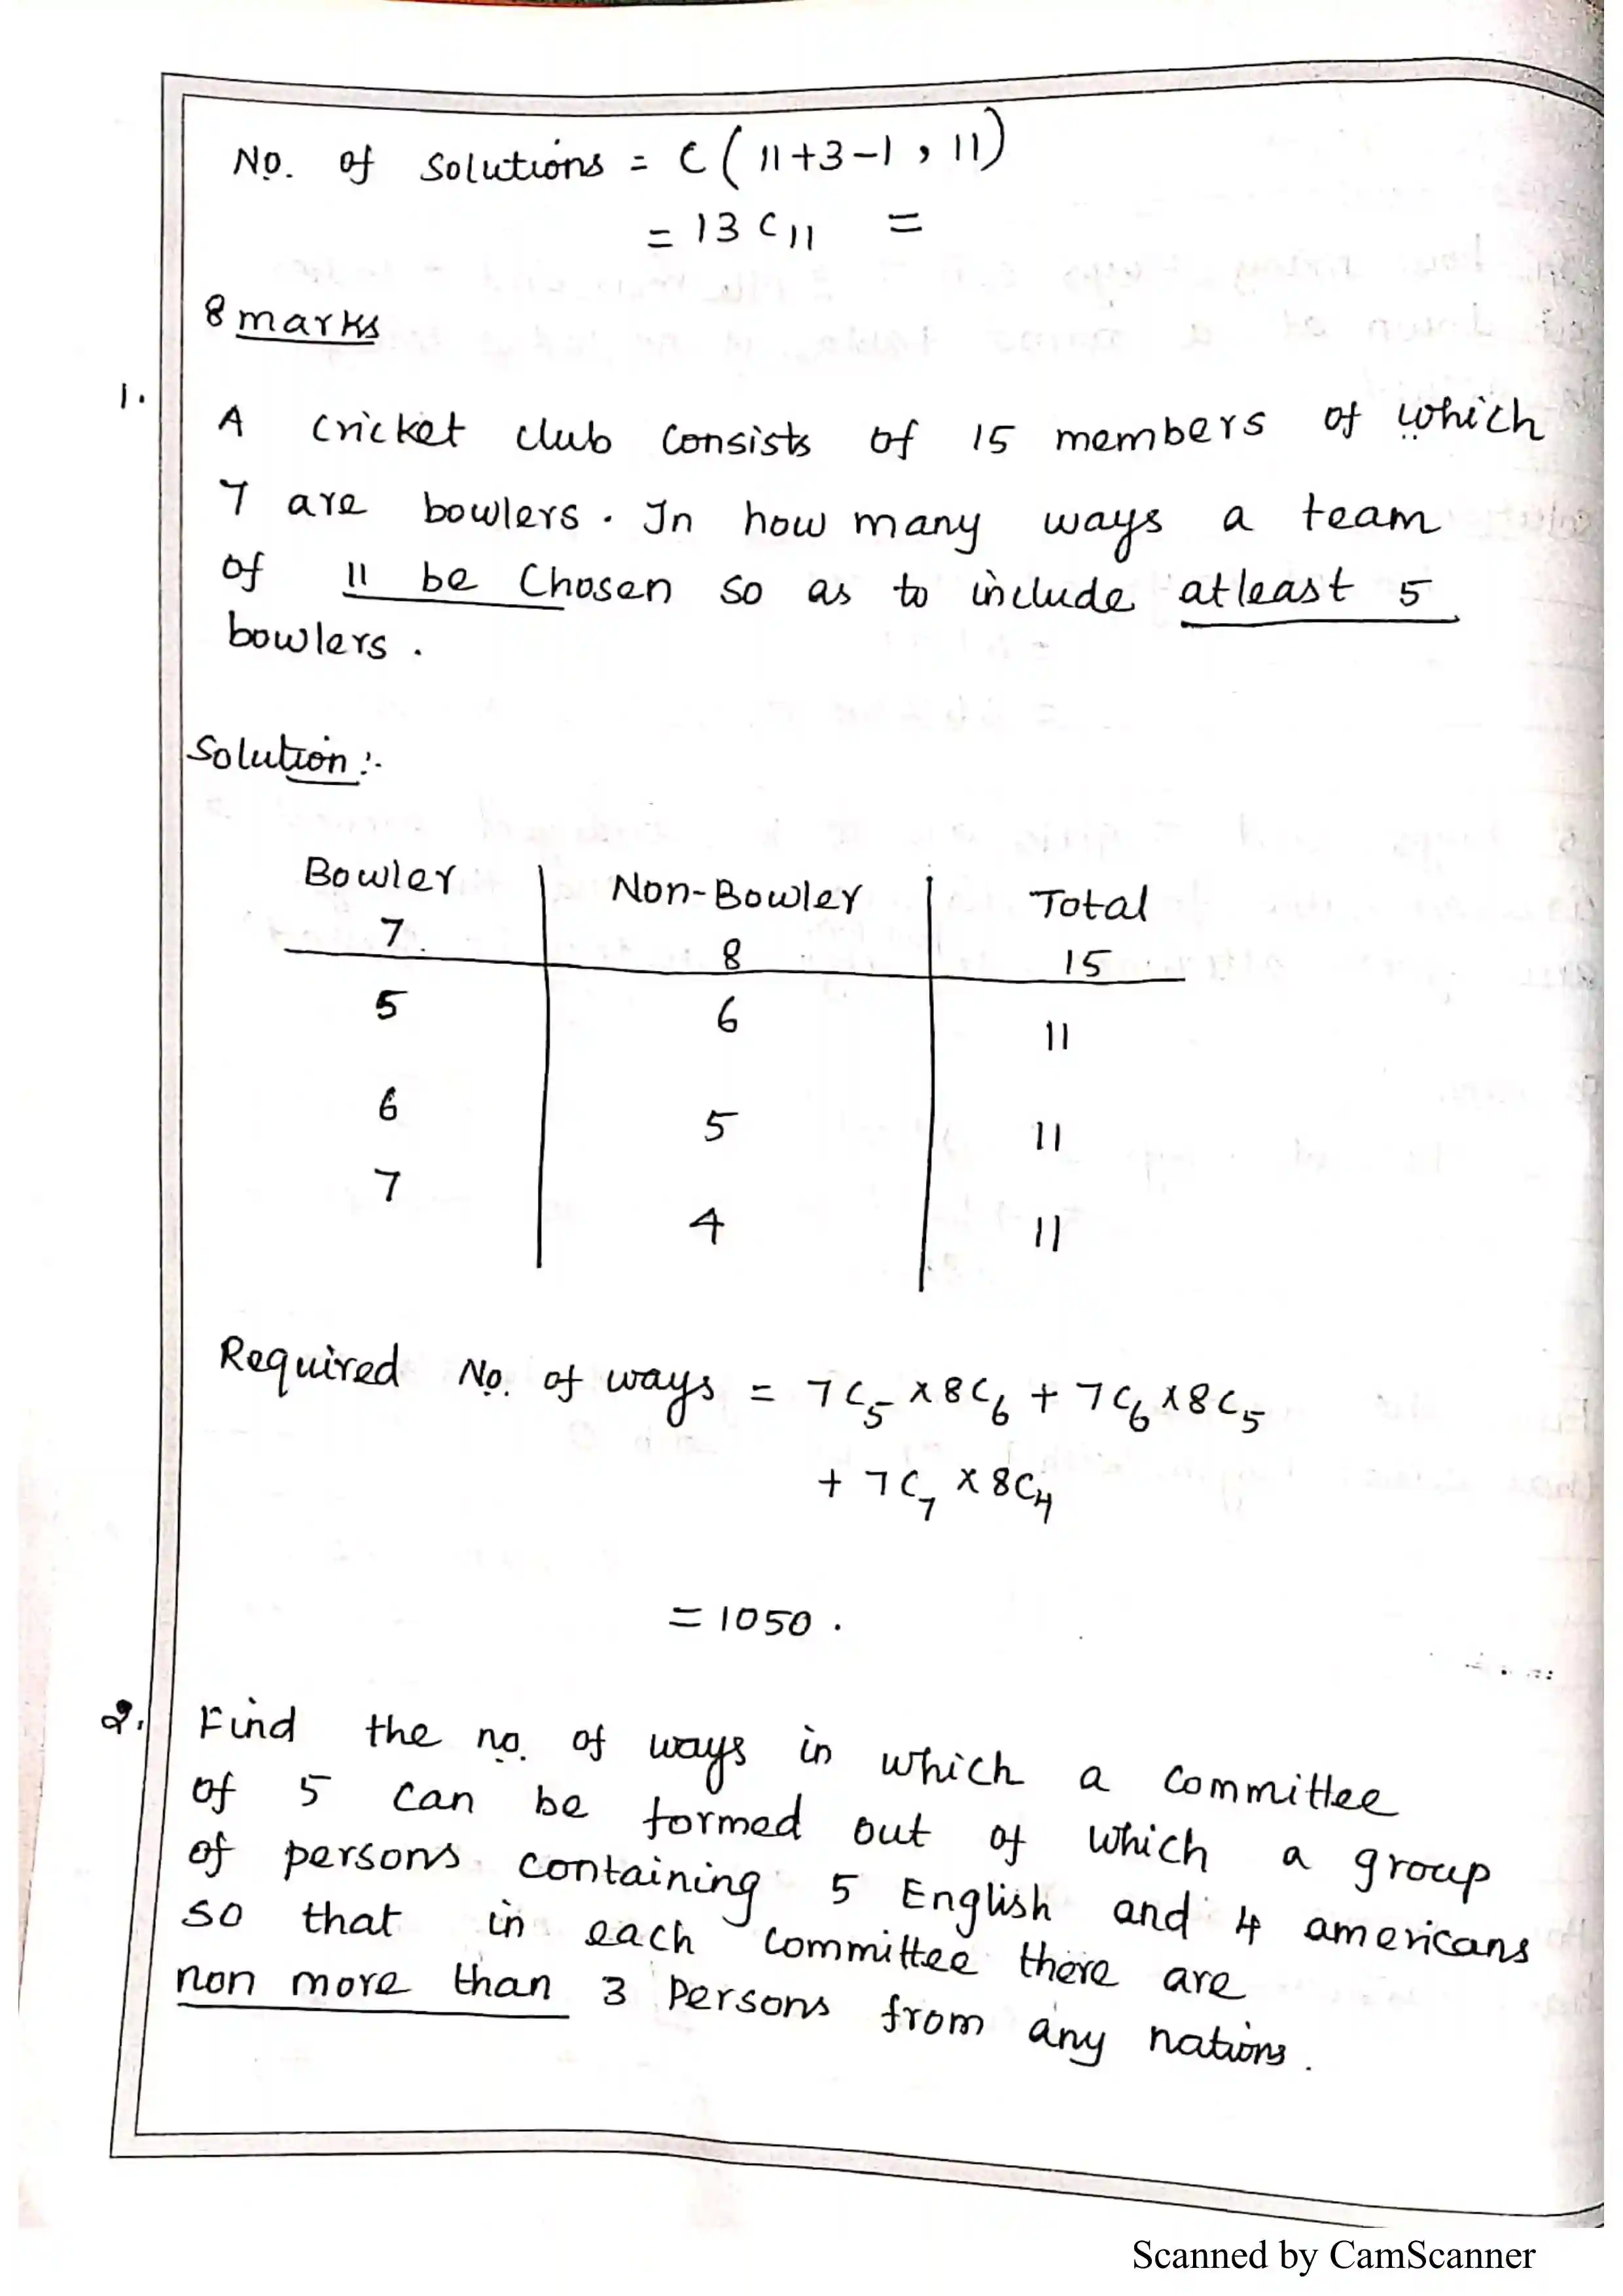 No. of solutions = C ( 11+3-1 , 11)
= 13 C11 =
8 marks
1.
A cricket club consists of 15 members of which
7 are bowlers. In how many ways a team
of 11 be chosen so as to include atleast 5
bowlers.
Solution:-
Bowler Non-Bowler Total
7. 8 15
5 6 11
6 5 11
7 4 11
Required No. of ways = 7C5 x 8C6 + 7C6 x 8C5
+ 7C7 x 8C4
= 1050.
2. Find the no. of ways in which a committee
of 5 can be formed out of which a group
of persons containing 5 English and 4 americans
so that in each committee there are
non more than 3 persons from any nations.
Scanned by CamScanner